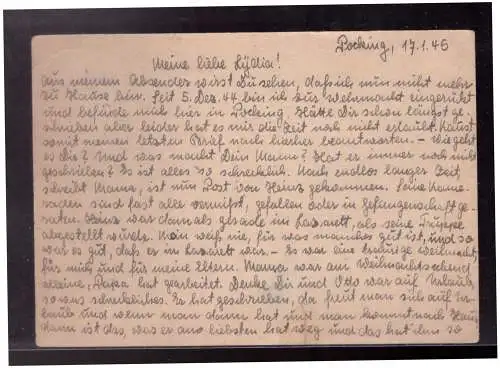 Pocking, 17.1.45
Meine liebe Lydia!
Aus meinem Absender wirst Du sehen, daß ich nun nicht mehr
zu Hause bin. Seit 5. Dez. 44 bin ich zur Wehrmacht eingerückt
und befinde mich hier in Pocking. Hätte Dir schon längst ge-
schrieben aber leider hat es mir die Zeit noch nicht erlaubt. Kannst
mir meinen letzten Brief nach hierher beantworten. - Wie geht
es Dir? Und was macht Dein Mann? Hat er immer noch nicht
geschrieben? Es ist alles so schrecklich. Nach endlos langer Zeit
schreibt Mama, ist nun Post von Heinz gekommen. Seine Kame-
raden sind fast alle vermißt, gefallen oder in Gefangenschaft ge-
raten. Heinz war damals gerade im Lazarett, als seine Truppe
abgestellt wurde. Man weiß nie, für was manches gut ist, und so
war es gut, daß er im Lazarett war. - Es war eine traurige Weihnacht,
für mich und für meine Eltern. Mama war am Weihnachtsabend
alleine, Papa hat gearbeitet. Denke Dir und Otto war auf Urlaub,
so was schreckliches. Er hat geschrieben, da freut man sich auf Ur-
laub und wenn man dann hat und man kommt nach Haus,
dann ist das, was er am liebsten hat weg und das hat ihm so